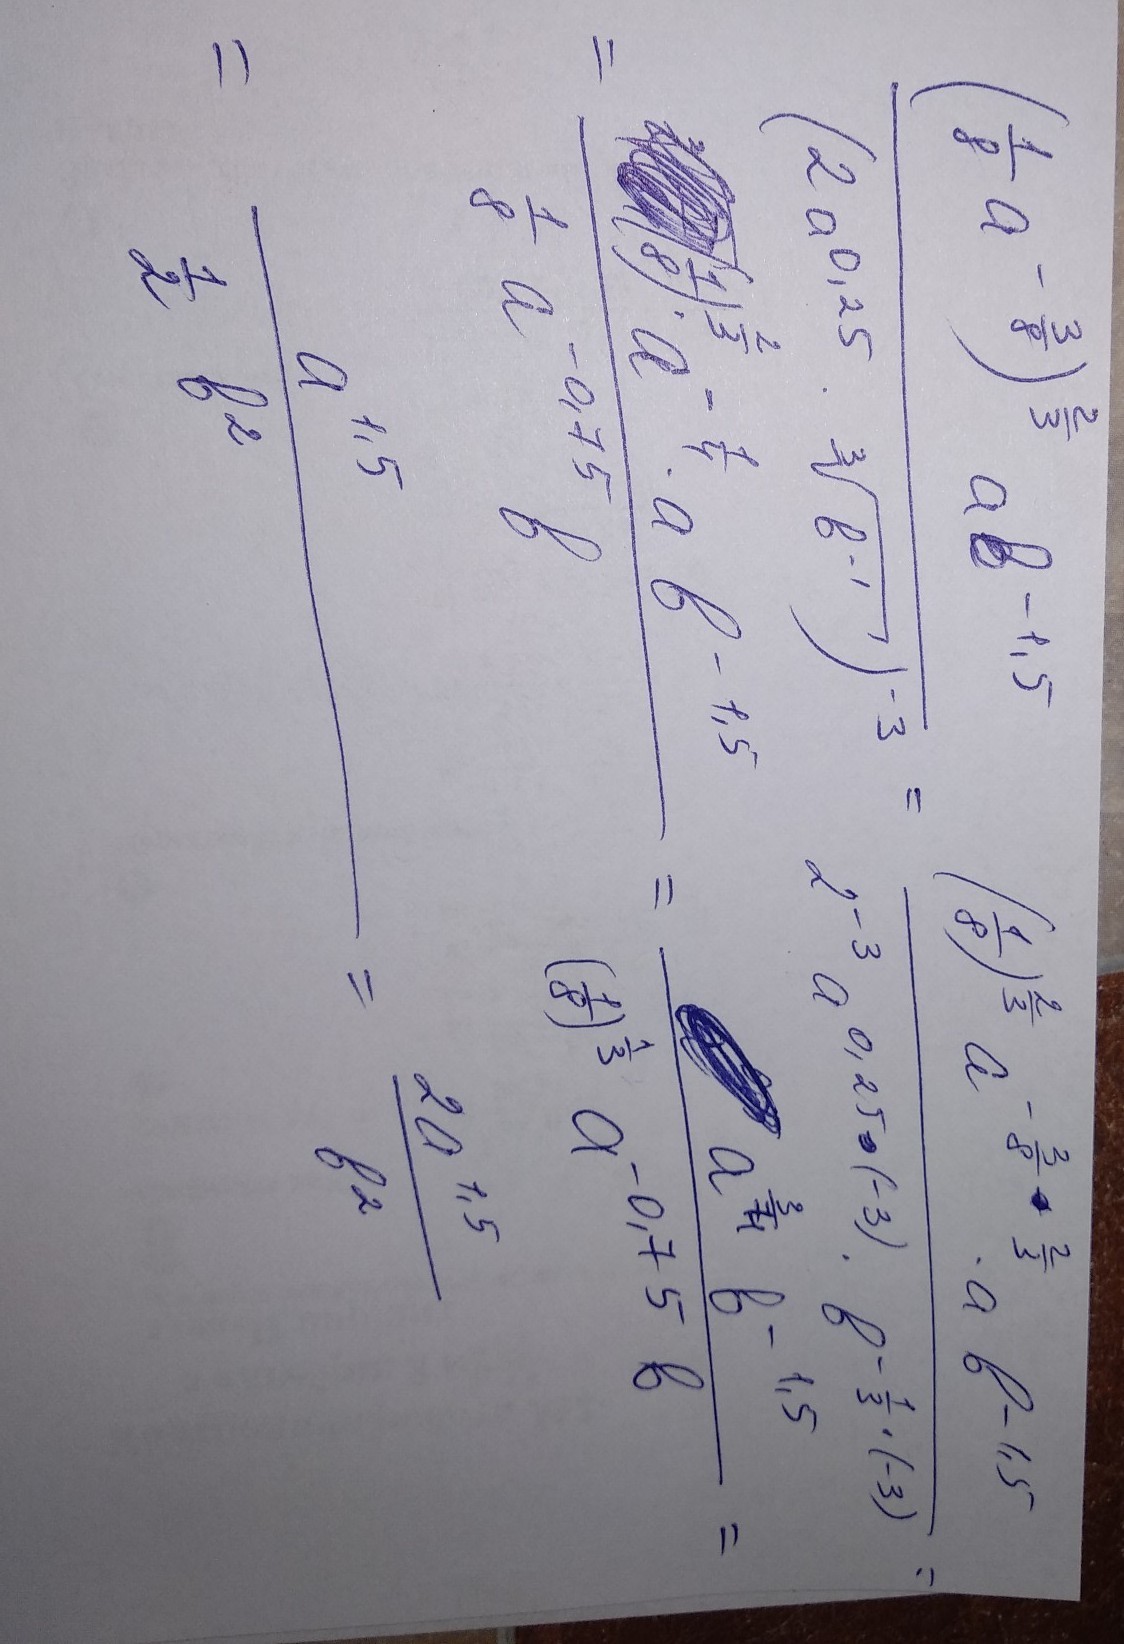 (1/8 a^(-3/8))^(2/3) ab^(-1,5) / (2a^(0,25) · ∛(b^(-1)))^(-3) = (1/8)^(2/3) a^(-3/8·2/3) · a b^(-1,5) / 2^(-3) a^(0,25·(-3)) · b^(-1/3·(-3)) =
= (1/8)^(2/3) · a^(-1/4) · a b^(-1,5) / 1/8 a^(-0,75) b = a^(3/4) b^(-1,5) / (1/8)^(1/3) a^(-0,75) b =
= a^(1,5) / 1/2 b^2 = 2a^(1,5) / b^2